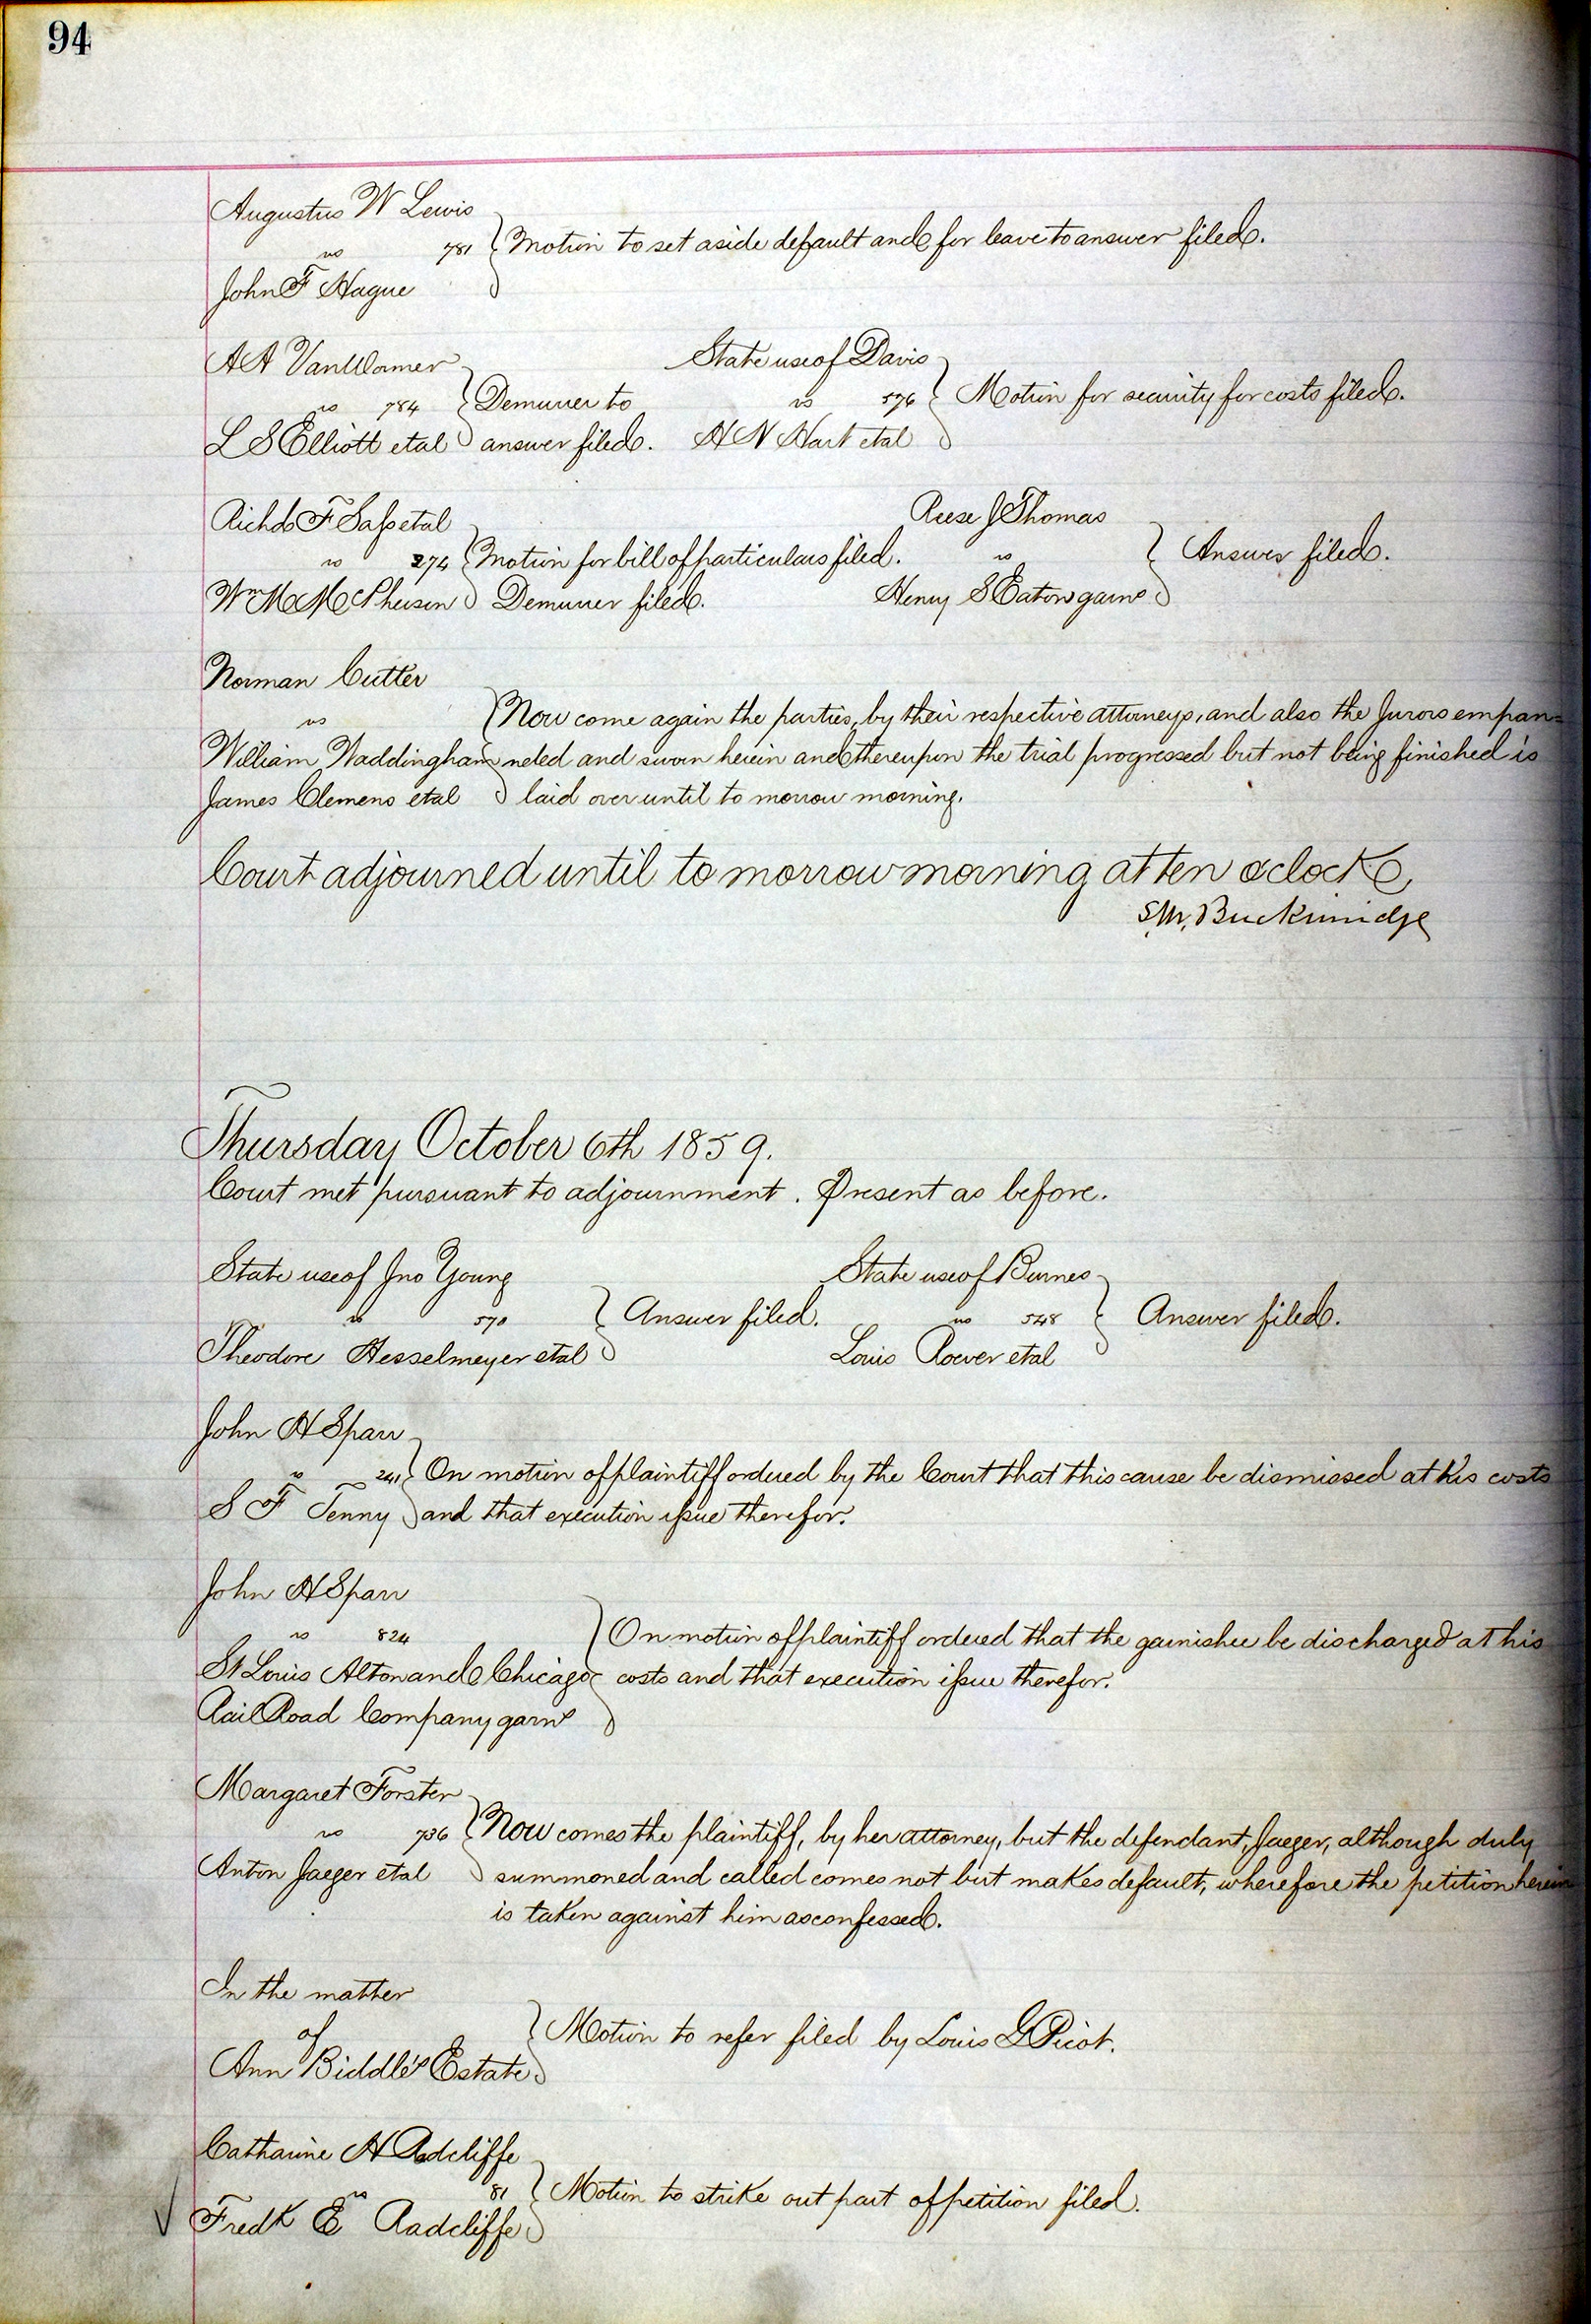 94
Augustus W Lewis
vs 781 Motion to set aside default and for leave to answer filed.
John F Hague
A A VanWormer
vs 784 Demurrer to
L S Elliott etal answer filed.
State use of Davis
vs 576 Motion for security for costs filed.
H N Hart etal
Richd F Sass etal
vs 274 Motion for bill of particulars filed.
Wm M McPherson Demurrer filed.
Reese J Thomas
vs Answer filed.
Henry S Eaton garne
Norman Cutter
vs Now come again the parties, by their respective attorneys, and also the Jurors empan=
William Waddingham neled and sworn herein and thereupon the trial progressed but not being finished is
James Clemens etal laid over until to morrow morning.
Court adjourned until to morrow morning at ten oclock
S.M. Breckinridge
Thursday October 6th 1859.
Court met pursuant to adjournment. Present as before.
State use of Jno Young
vs 570 Answer filed.
Theodore Hesselmeyer etal
State use of Burnes
vs 548 Answer filed.
Louis Roever etal
John H Sparr
vs 241 On motion of plaintiff ordered by the Court that this cause be dismissed at his costs
S F Tenny and that execution issue therefor.
John H Sparr
vs 824 On motion of plaintiff ordered that the garnishee be discharged at his
St Louis Alton and Chicago costs and that execution issue therefor.
Rail Road Company garne
Margaret Forster
vs 736 Now comes the plaintiff, by her attorney, but the defendant, Jaeger, although duly
Anton Jaeger etal summoned and called comes not but makes default, wherefore the petition herein
is taken against him as confessed.
In the matter
of Motion to refer filed by Louis G Picot.
Ann Biddle's Estate
Catharine H Radcliffe
vs 81 Motion to strike out part of petition filed.
Fredk E Radcliffe